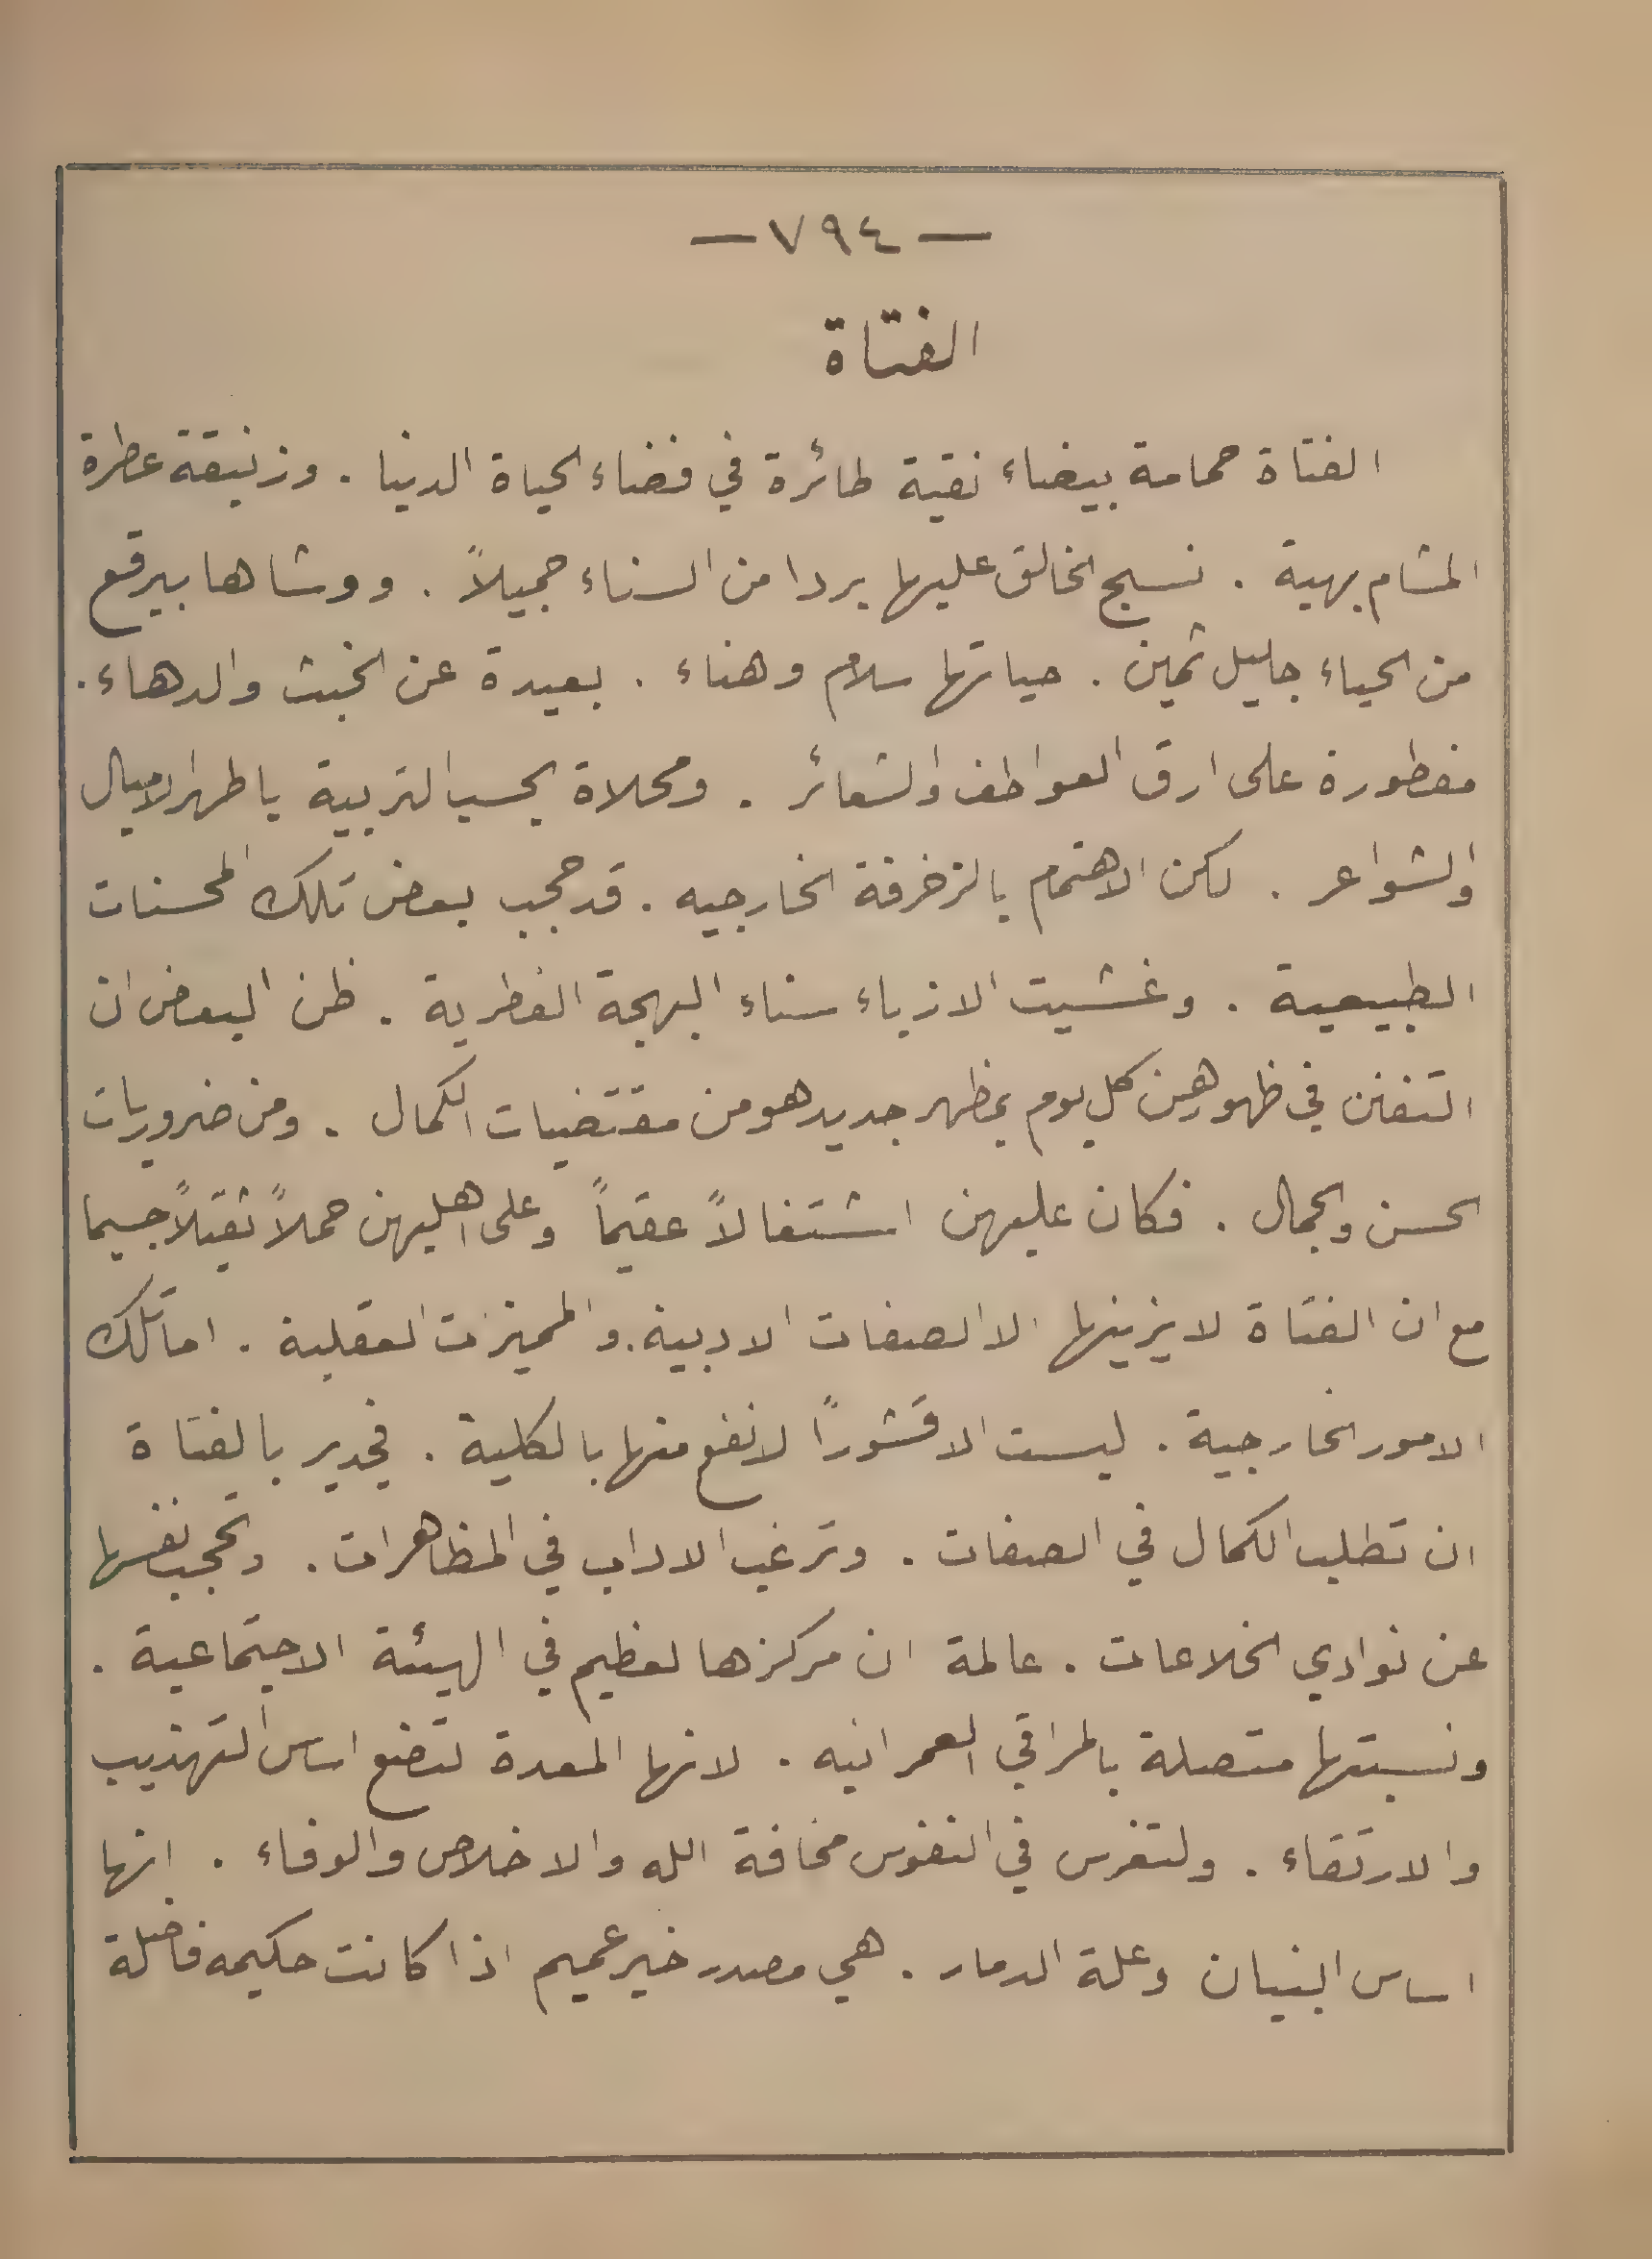 — ٧٩٤ —
الفتاة
الفتاة حمامة بيضاء نقية طائرة في فضاء الحياة الدنيا . وزنبقة عطرة
المشام بهية . نسج الخالق عليها بردا من السناء جميلاً . ووشاها ببرقع
من الحياء جليل ثمين . حياتها سلام وهناء . بعيدة عن الخبث والدهاء .
مفطورة على ارق العواطف والشعائر . ومحلاة بحسب التربية باطهر الاميال
والشواعر . لكن الاهتمام بالزخرفة الخارجيه . قد حجب بعض تلك المحسنات
الطبيعية . وغشيت الازياء سناء البهجة الفطرية . ظن البعض ان
التفنن في ظهورهن كل يوم بمظهر جديد هو من مقتضيات الكمال . ومن ضروريات
الحسن والجمال . فكان عليهن اشتغالاً عقيماً وعلى اهليهن حملاً ثقيلاً جسيما
مع ان الفتاة لا يزينها الا الصفات الادبية . والمميزات العقلية . اما تلك
الامور الخارجية . ليست الا قشوراً لا نفع منها بالكلية . فجدير بالفتاة
ان تطلب الكمال في الصفات . وترغب الاداب في المظاهرات . وتحجب نفسها
عن نوادي الخلاعات . عالمة ان مركزها لعظيم في الهيئة الاجتماعية .
ونسبتها متصلة بالمراقي العمرانيه . لانها المعدة لتضع اساس التهذيب
والارتقاء . ولتغرس في النفوس مخافة الله والاخلاص والوفاء . انها
اساس البنيان وعلة الدمار . هي مصدر خير عميم اذا كانت حكيمه فاضلة